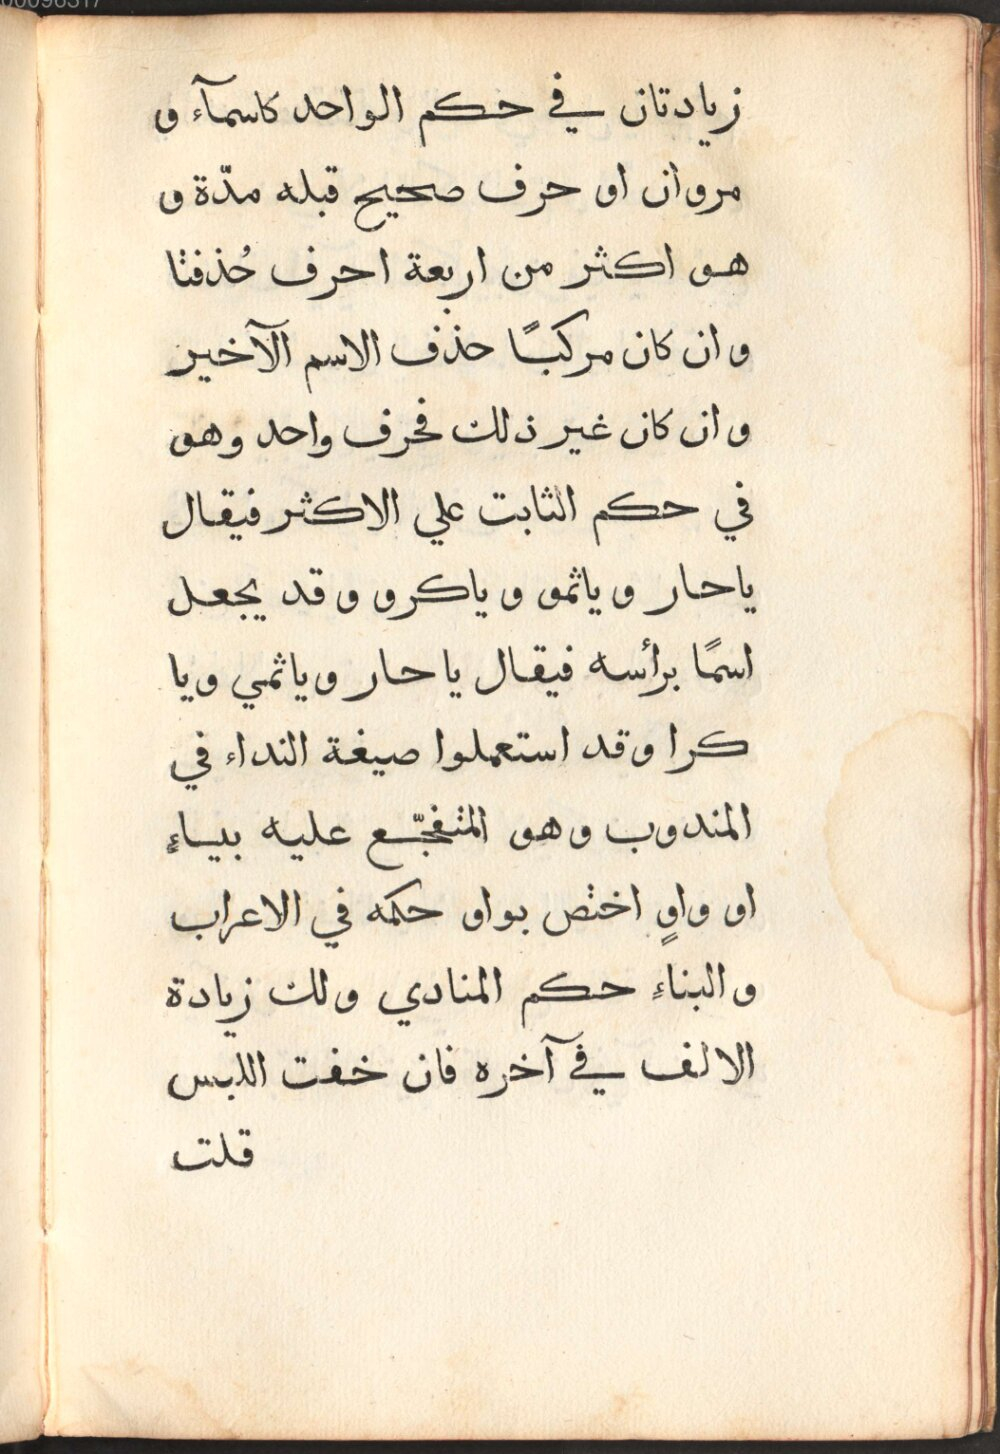 زيادتان في حكم الواحد كاسمآء و
مروان او حرف صحيح قبله مدّة و
هو اكثر من اربعة احرف حُذفتا
و ان كان مركبًا حذف الاسم الآخير
و ان كان غير ذلك فحرف واحد وهو
في حكم الثابت علي الاكثر فيقال
يا حار و ياثمو و ياكرو و قد يجعل
اسمًا برأسه فيقال يا حار وياثمي ويا
كرا وقد استعملوا صيغة النداء في
المندوب وهو المتفجّع عليه بياءٍ
او واوٍ اختص بواو حكمه في الاعراب
والبناءِ حكم المنادي ولك زيادة
الالف في آخره فان خفت اللبس
قلت